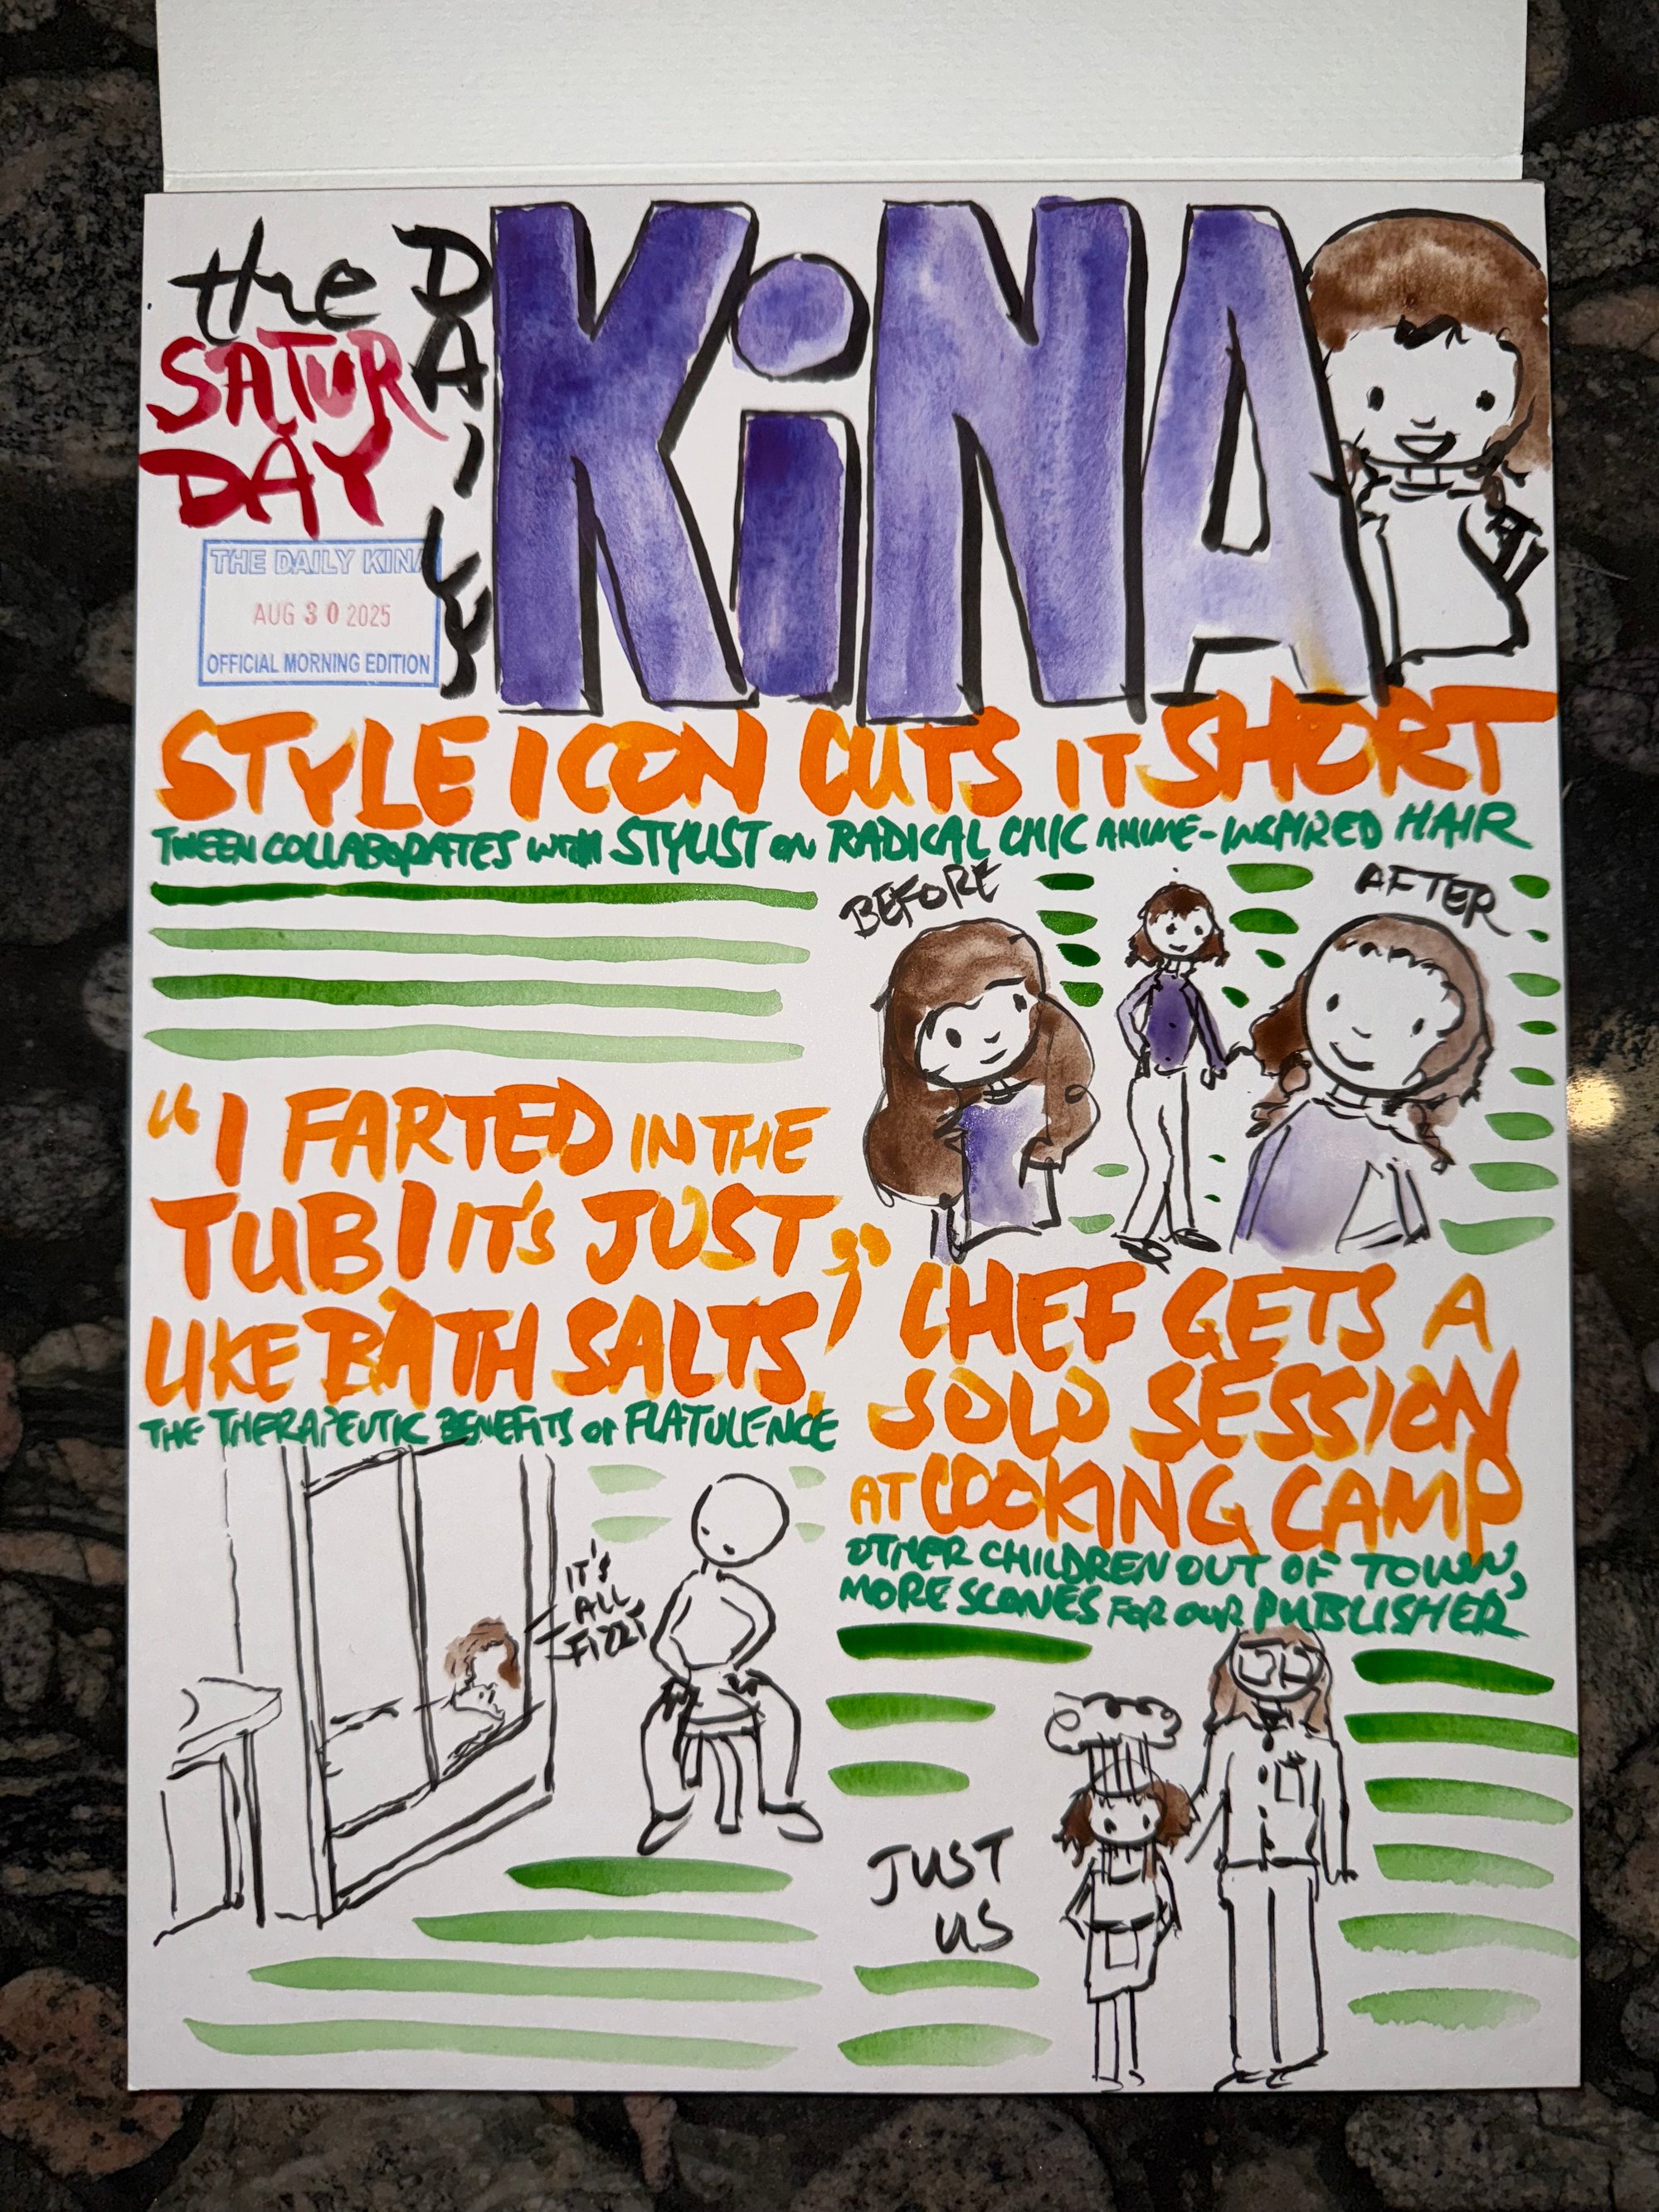 the
SATUR
DAY
DAILY
KiNA
THE DAILY KINA
AUG 30 2025
OFFICIAL MORNING EDITION
STYLE ICON CUTS IT SHORT
TWEEN COLLABORATES WITH STYLIST ON RADICAL CHIC ANIME-INSPIRED HAIR
BEFORE
AFTER
"I FARTED IN THE
TUB! IT'S JUST
LIKE BATH SALTS,"
THE THERAPEUTIC BENEFITS OF FLATULENCE
IT'S
ALL
CHEF GETS A
SOLO SESSION
AT COOKING CAMP
OTHER CHILDREN OUT OF TOWN,
MORE SCONES FOR OUR PUBLISHER
JUST
US